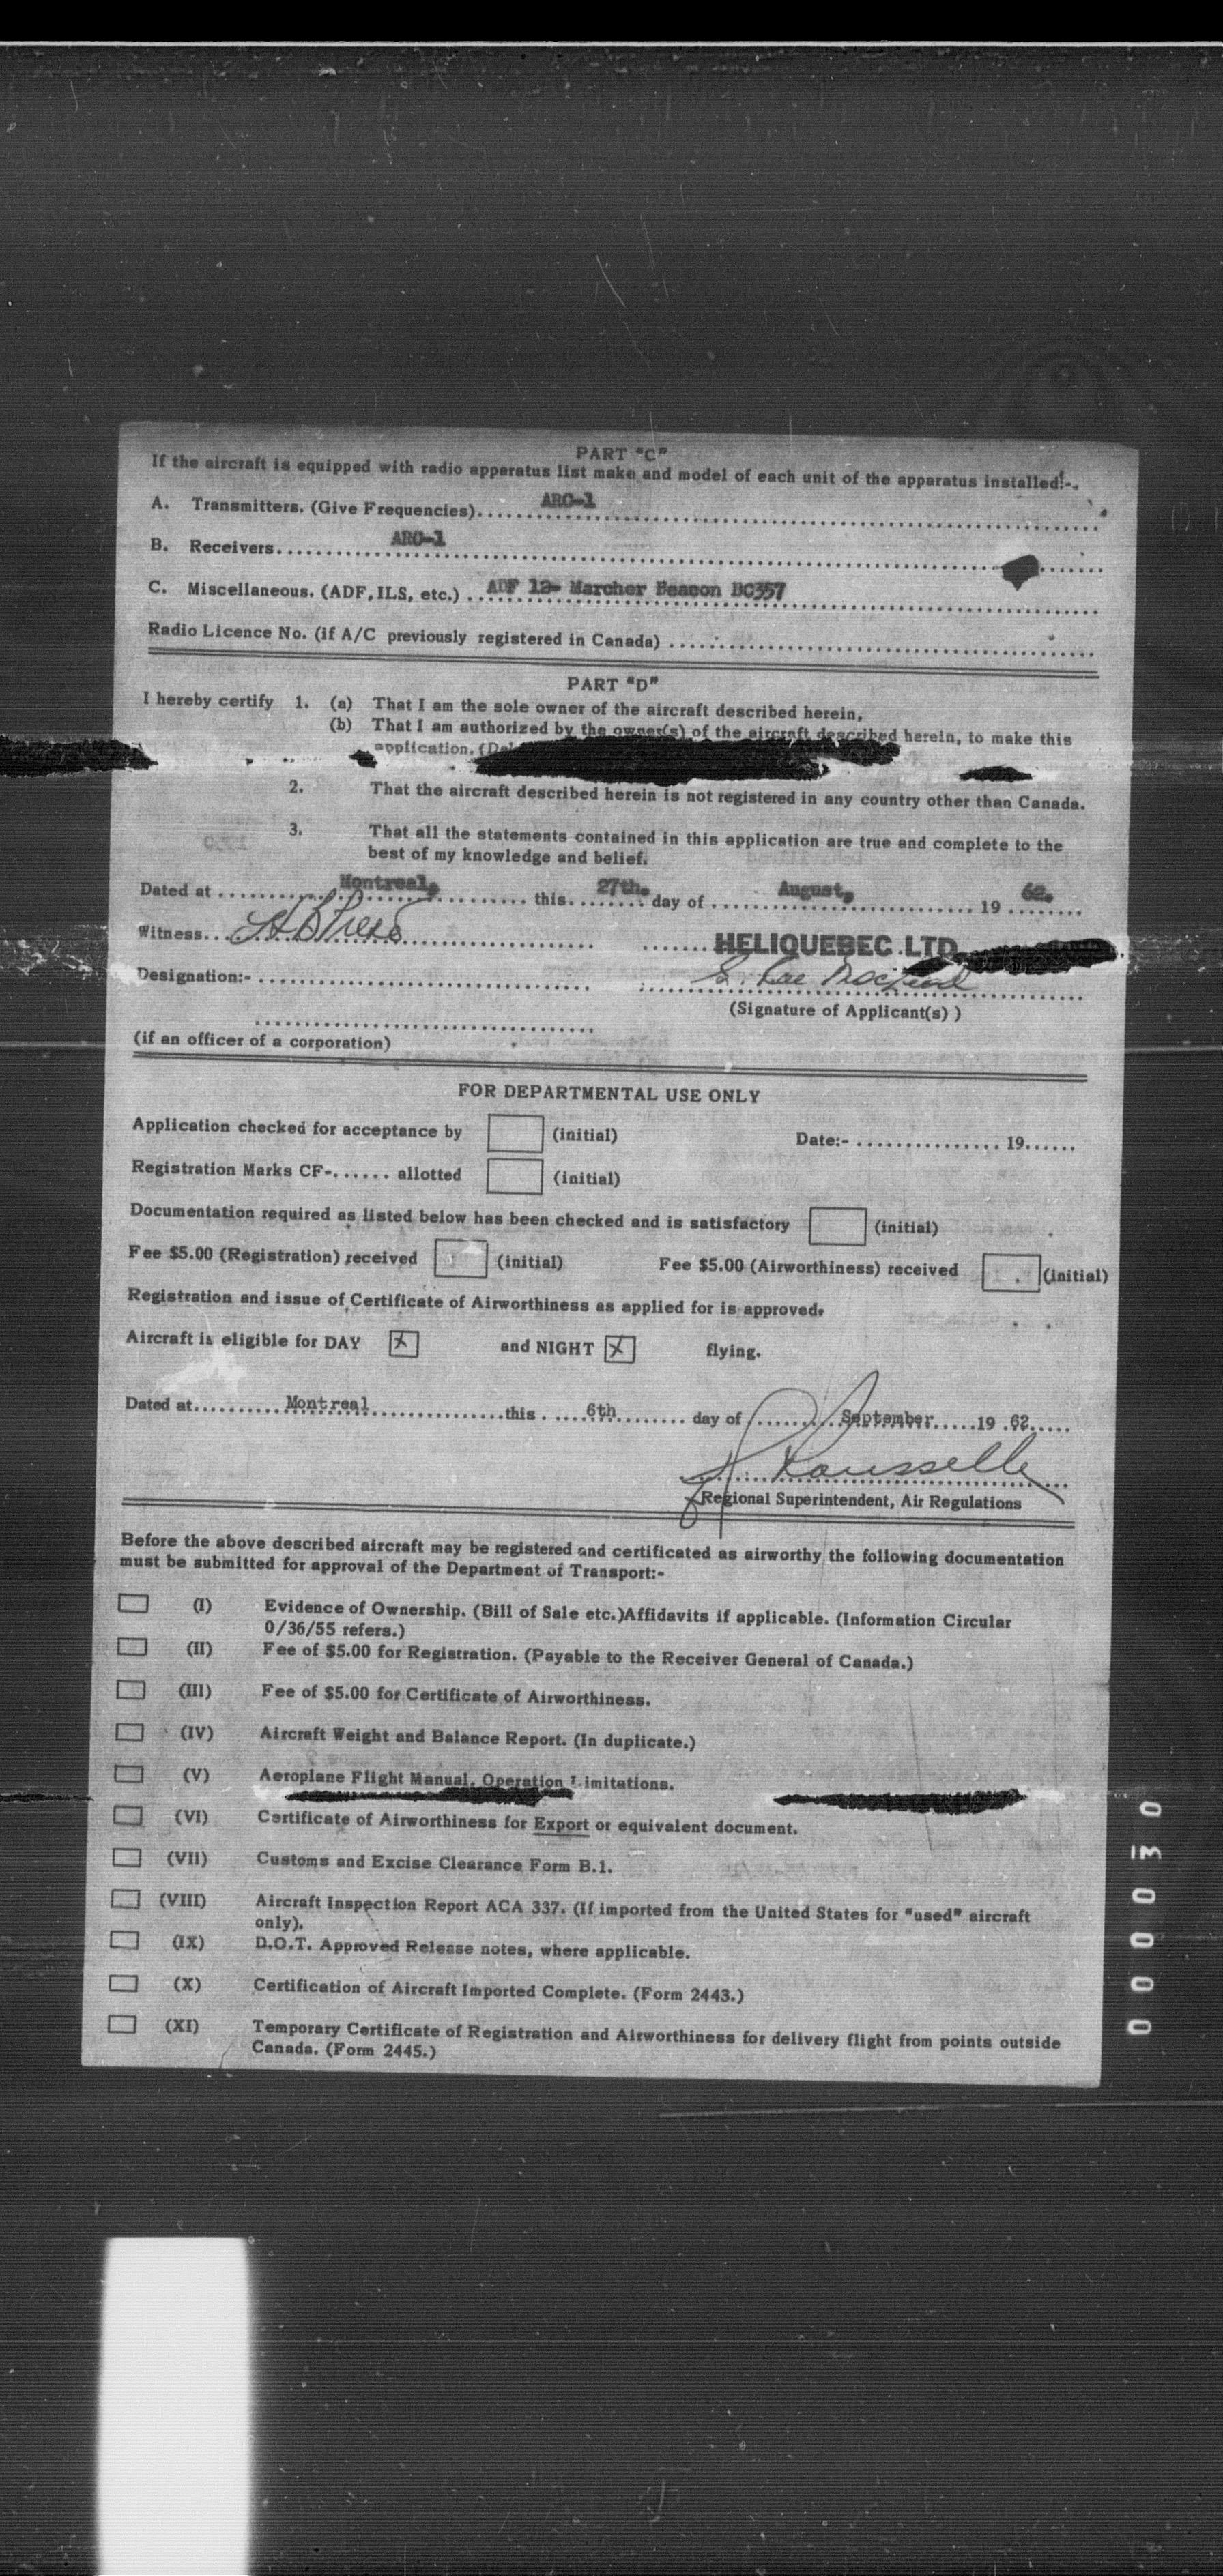 PART "C"
If the aircraft is equipped with radio apparatus list make and model of each unit of the apparatus installed:-.
A. Transmitters. (Give Frequencies)..... ARC-1
B. Receivers..... ARC-1
C. Miscellaneous. (ADF, ILS, etc.) ..... ADF 12- Marcher Beacon BC357
Radio Licence No. (if A/C previously registered in Canada) .....
PART "D"
I hereby certify 1. (a) That I am the sole owner of the aircraft described herein,
(b) That I am authorized by the owner(s) of the aircraft described herein, to make this
application.
2. That the aircraft described herein is not registered in any country other than Canada.
3. That all the statements contained in this application are true and complete to the
best of my knowledge and belief.
Dated at ..... Montreal, ..... this ..... 27th. ..... day of ..... August, ..... 19 62.
Witness.....
HELIQUEBEC LTD.
Designation:- .....
(Signature of Applicant(s) )
(if an officer of a corporation)
FOR DEPARTMENTAL USE ONLY
Application checked for acceptance by (initial) Date:- ..... 19......
Registration Marks CF-...... allotted (initial)
Documentation required as listed below has been checked and is satisfactory (initial)
Fee $5.00 (Registration) received (initial) Fee $5.00 (Airworthiness) received (initial)
Registration and issue of Certificate of Airworthiness as applied for is approved.
Aircraft is eligible for DAY X and NIGHT X flying.
Dated at..... Montreal .....this ..... 6th ..... day of ..... September ..... 19 62
Rousselle
Regional Superintendent, Air Regulations
Before the above described aircraft may be registered and certificated as airworthy the following documentation
must be submitted for approval of the Department of Transport:-
(I) Evidence of Ownership. (Bill of Sale etc.)Affidavits if applicable. (Information Circular
0/36/55 refers.)
(II) Fee of $5.00 for Registration. (Payable to the Receiver General of Canada.)
(III) Fee of $5.00 for Certificate of Airworthiness.
(IV) Aircraft Weight and Balance Report. (In duplicate.)
(V) Aeroplane Flight Manual, Operation Limitations.
(VI) Certificate of Airworthiness for Export or equivalent document.
(VII) Customs and Excise Clearance Form B.1.
(VIII) Aircraft Inspection Report ACA 337. (If imported from the United States for "used" aircraft
only).
(IX) D.O.T. Approved Release notes, where applicable.
(X) Certification of Aircraft Imported Complete. (Form 2443.)
(XI) Temporary Certificate of Registration and Airworthiness for delivery flight from points outside
Canada. (Form 2445.)
000030